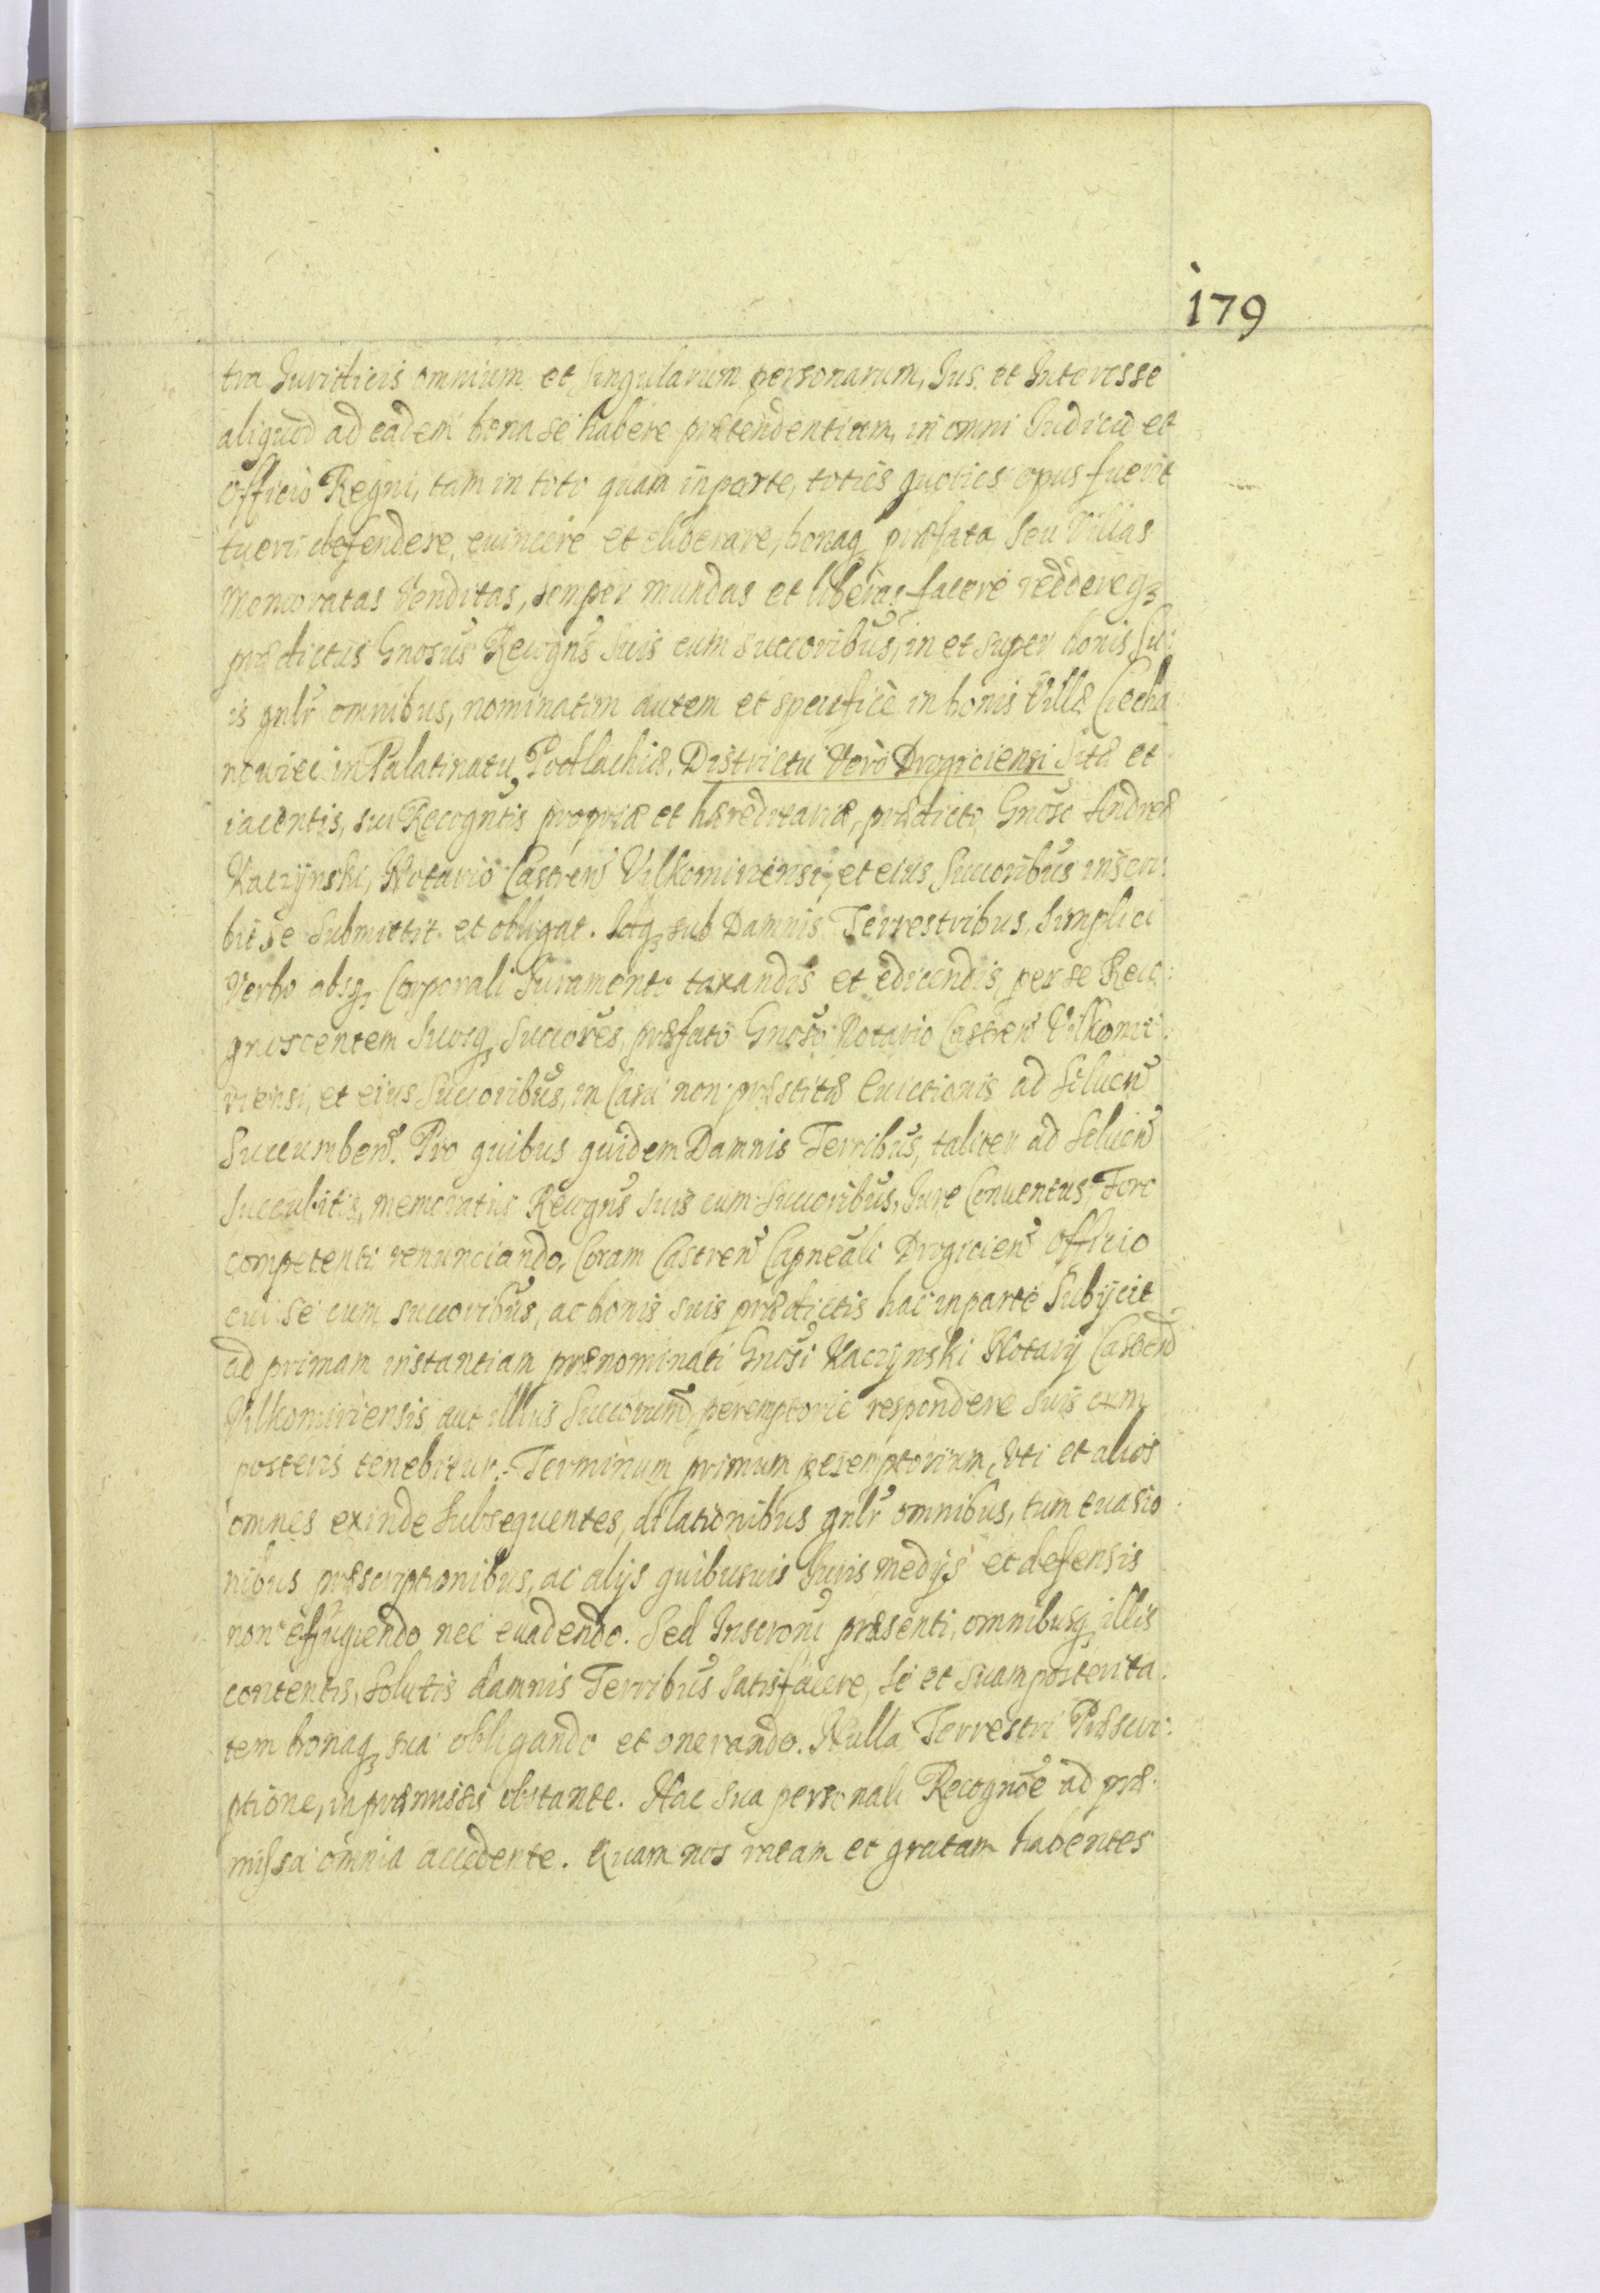 179
tra Juridicis omnium et singularum personarum, Jus et Interesse
aliquod ad eadem bona se habere prætendentium, in omni Judicio et
Officio Regni, tam in toto quam in parte, toties quoties opus fuerit
tueri defendere, evincere et eliberare, bonaq præfata seu Villas
memoratas Venditas, semper mundas et liberas facere reddereq3
prædictus Gnosus Recogns suis cum succoribus, in et super bonis su:
is gnlr omnibus, nominatim autem et specifice in bonis Villæ Ciecha
nowiec in Palatinatu Podlachiæ, Districtu Vero Drogiciensi sitæ et
iacentis, sui Recogntis propriæ et hæreditariæ, prædicto Gnoso Andreæ
Kaczynski, Notario Castren Vilkomiriensi, et eius succoribus inscri:
bit se submittit et obligat. Idq3 sub Damnis Terrestribus, simplici
Verbo absq3 Corporali Juramento taxandis et edicendis per se Reco:
gnoscentem suosq3 succores, præfato Gnoso Notario Castren Vilkomi:
riensi, et eius succoribus, in Casu non præstitæ Evictionis ad soluen
succumben. Pro quibus quidem Damnis Terribus, taliter ad soluen
succubitis, memoratus Recogns suis cum succoribus, Jure Conuentus Foro
competenti renunciando, Coram Castren Capneali Drogicien Officio
cui se cum succoribus, ac bonis suis prædictis hac in parte subijcit
ad primam instantiam prænominati Gnosi Kaczynski Notarij Castren
Vilkomiriensis aut illius succorum, peremptorie respondere suis cum
posteris tenebitur. Terminum primum peremptorium, Uti et alios
omnes exinde subsequentes, dilationibus gnlr omnibus, tum euasio
nibus præscriptionibus, ac alijs quibusuis Juris medijs et defensis
non effugiendo nec euadendo. Sed Inscroni præsenti, omnibusq3 illis
contentis, solutis damnis Terribus satisfacere, se et suam posterita
tem bonaq3 sua obligando et onerando. Nulla Terrestri Præscri:
ptione, in præmissis obstante. Hac sua personali Recogne ad præ:
missa omnia accedente. Quam nos ratam et gratam habentes